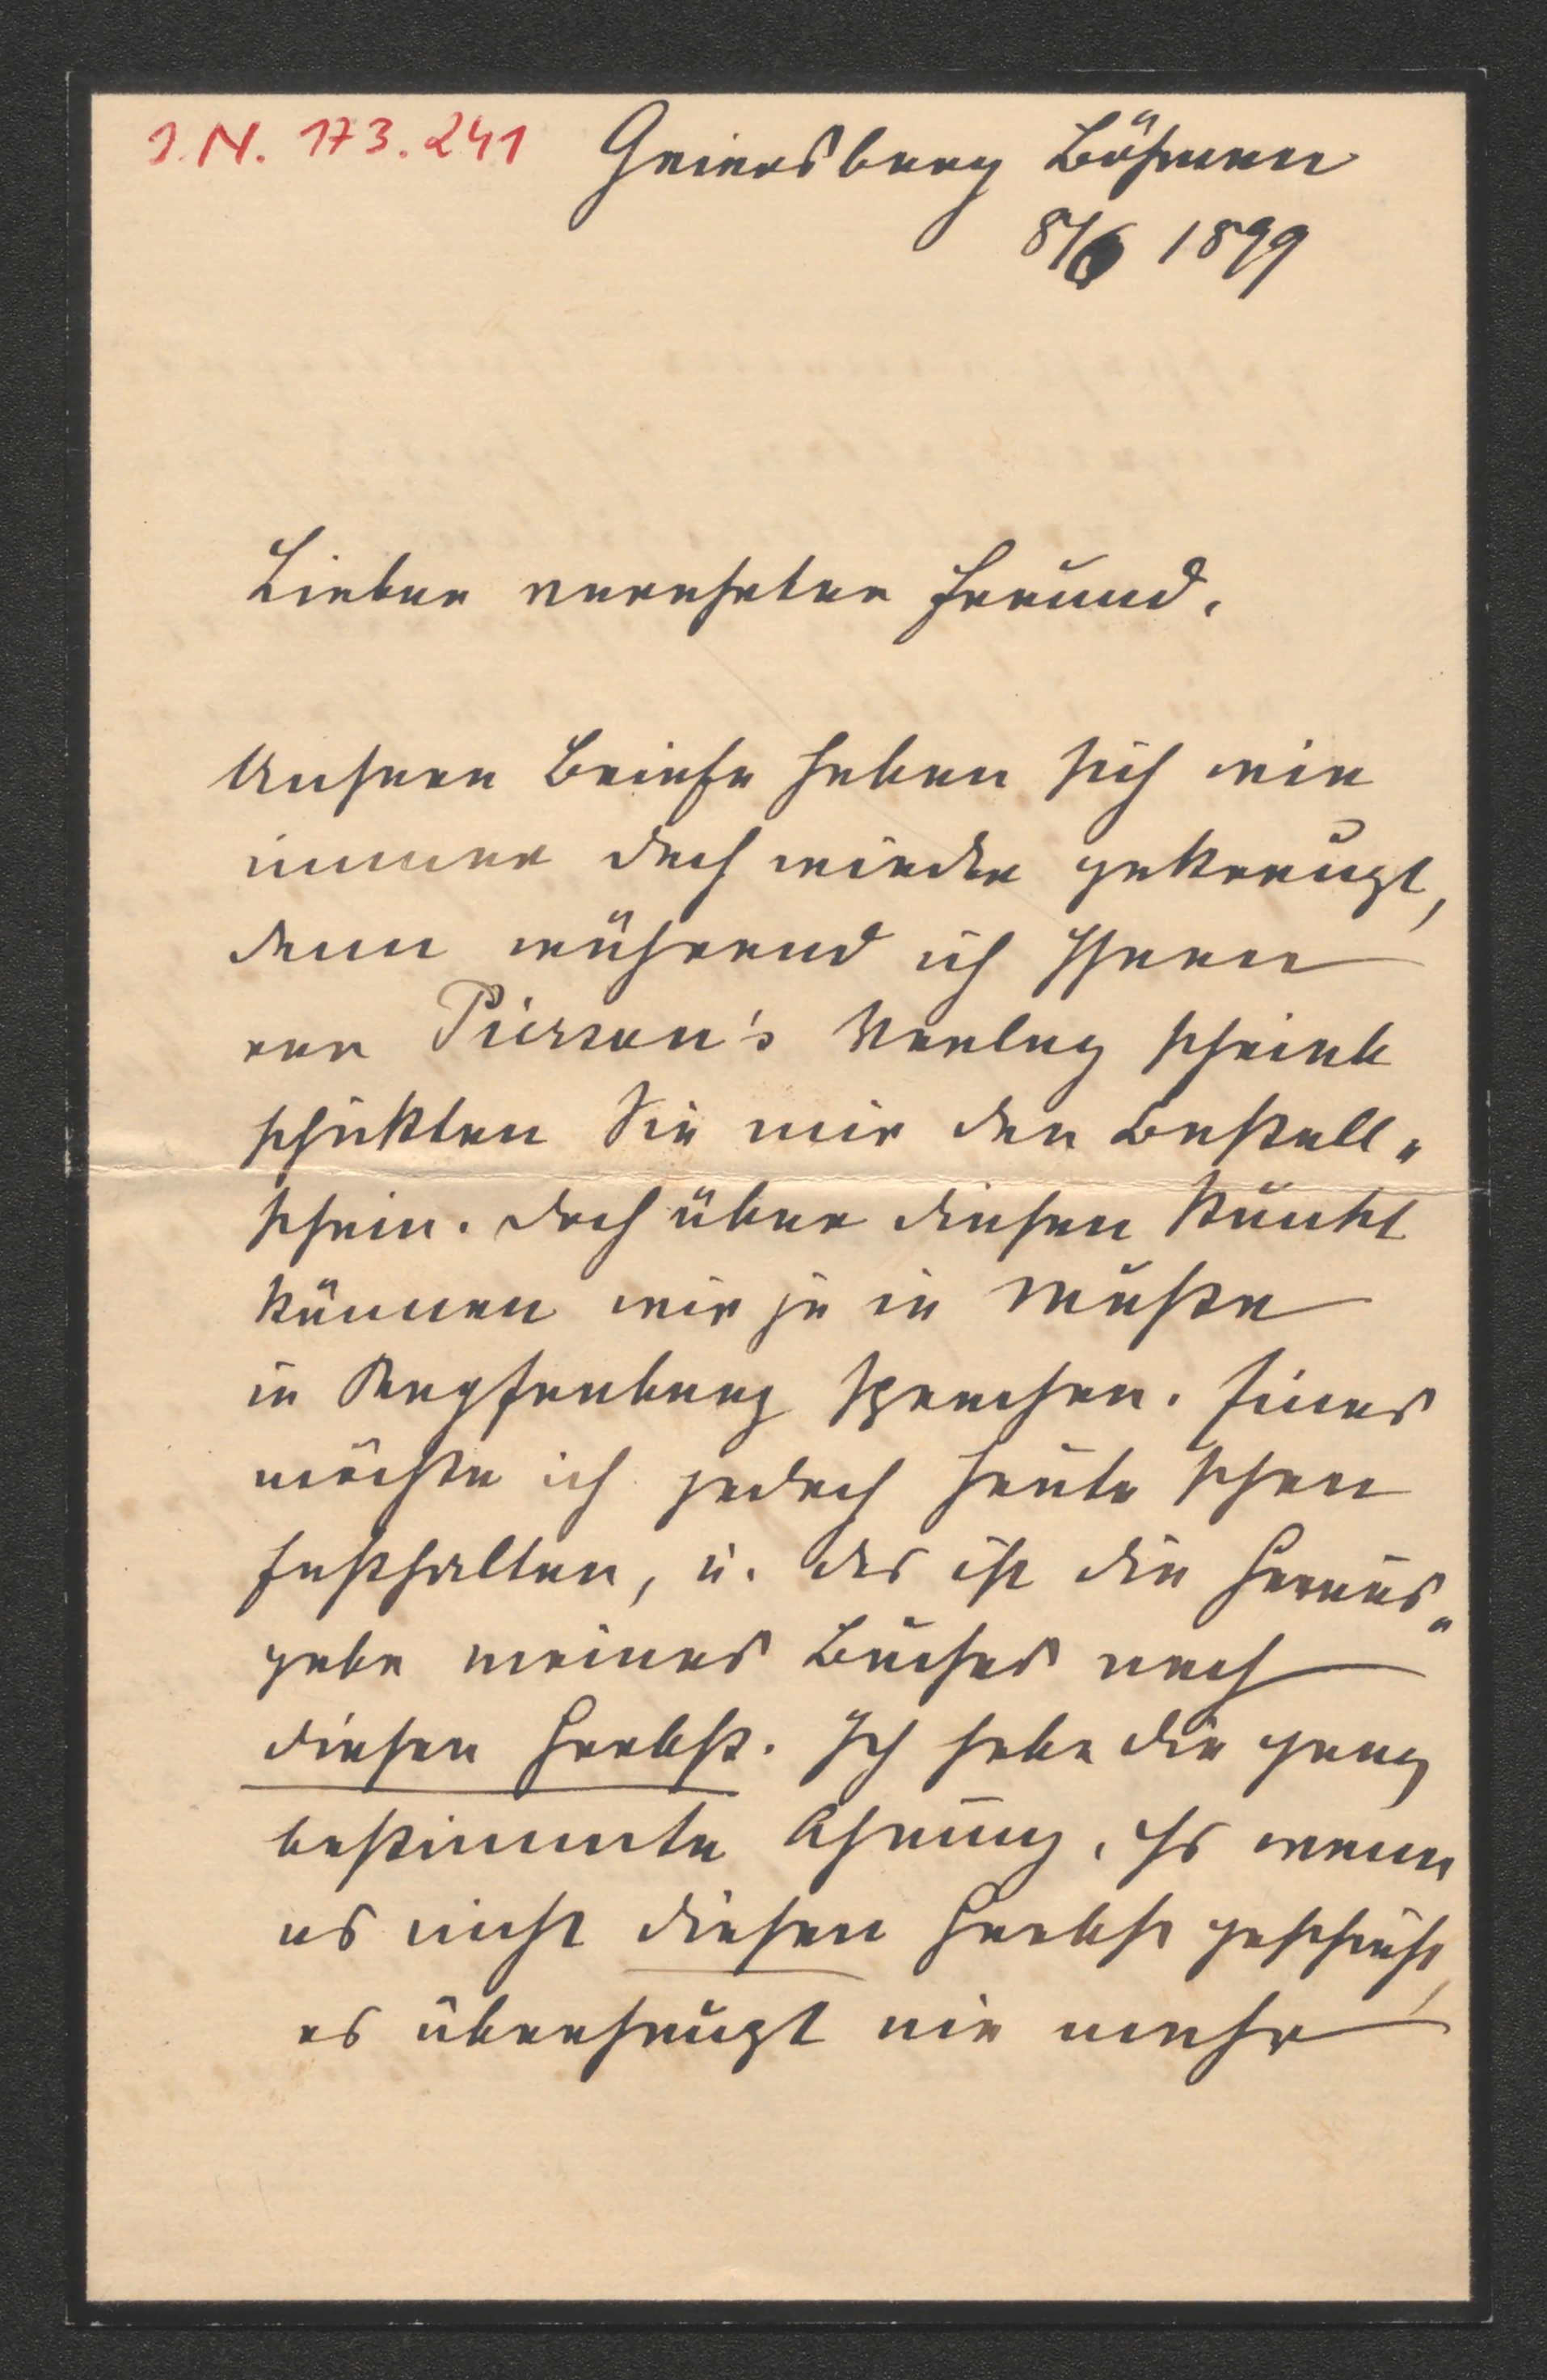 I.N. 173.241
Geiersburg Böhmen
8/6 1899
Lieber verehrter Freund.
Unsere Briefe haben sich wie
immer doch wieder gekreuzt,
denn während ich Ihnen
von Pierson's Verlag schrieb
schickten Sie mir den Bestell„
schein. Doch über diesen Punkt
können wir ja in Muße
in Kapfenberg sprechen. Eines
möchte ich jedoch heute schon
festhalten, u. das ist die Heraus„
gabe meines Buches noch
diesen Herbst. Ich habe die ganz
bestimmte Ahnung, daß wenn
es nicht diesen Herbst geschieht,
es überhaupt nie mehr